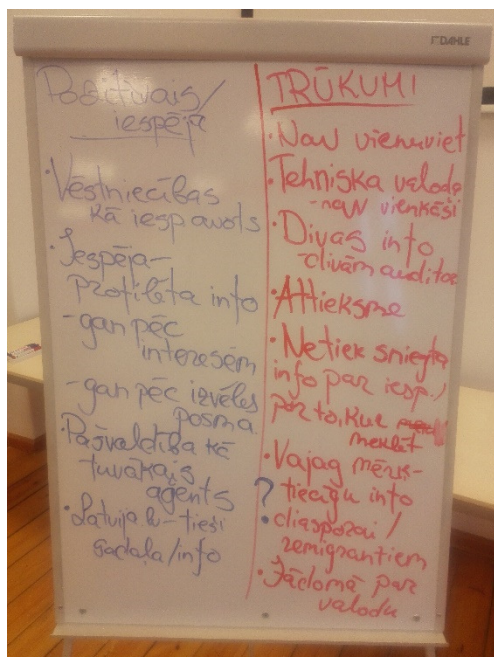 DAHLE
Pozitīvais/
iespēja
• Vēstniecības
kā iesp avots
• Iespēja -
profilēta info
- gan pēc
interesēm
- gan pēc izvēles
posma
Pašvaldība kā
tuvākais
aģents
• Latvija.lv - tieši
sadaļa/info
TRŪKUMI
• Nav vienuviet
• Tehniska valoda
- nav vienkāši
• Divas info
- divām auditor
• Attieksme
• Netiek sniegta
info par iesp./
par to, kur
meklēt
• Vajag mērķ-
tiecīgu info
? • diasporai/
remigrantiem
• Jādomā par
valodu